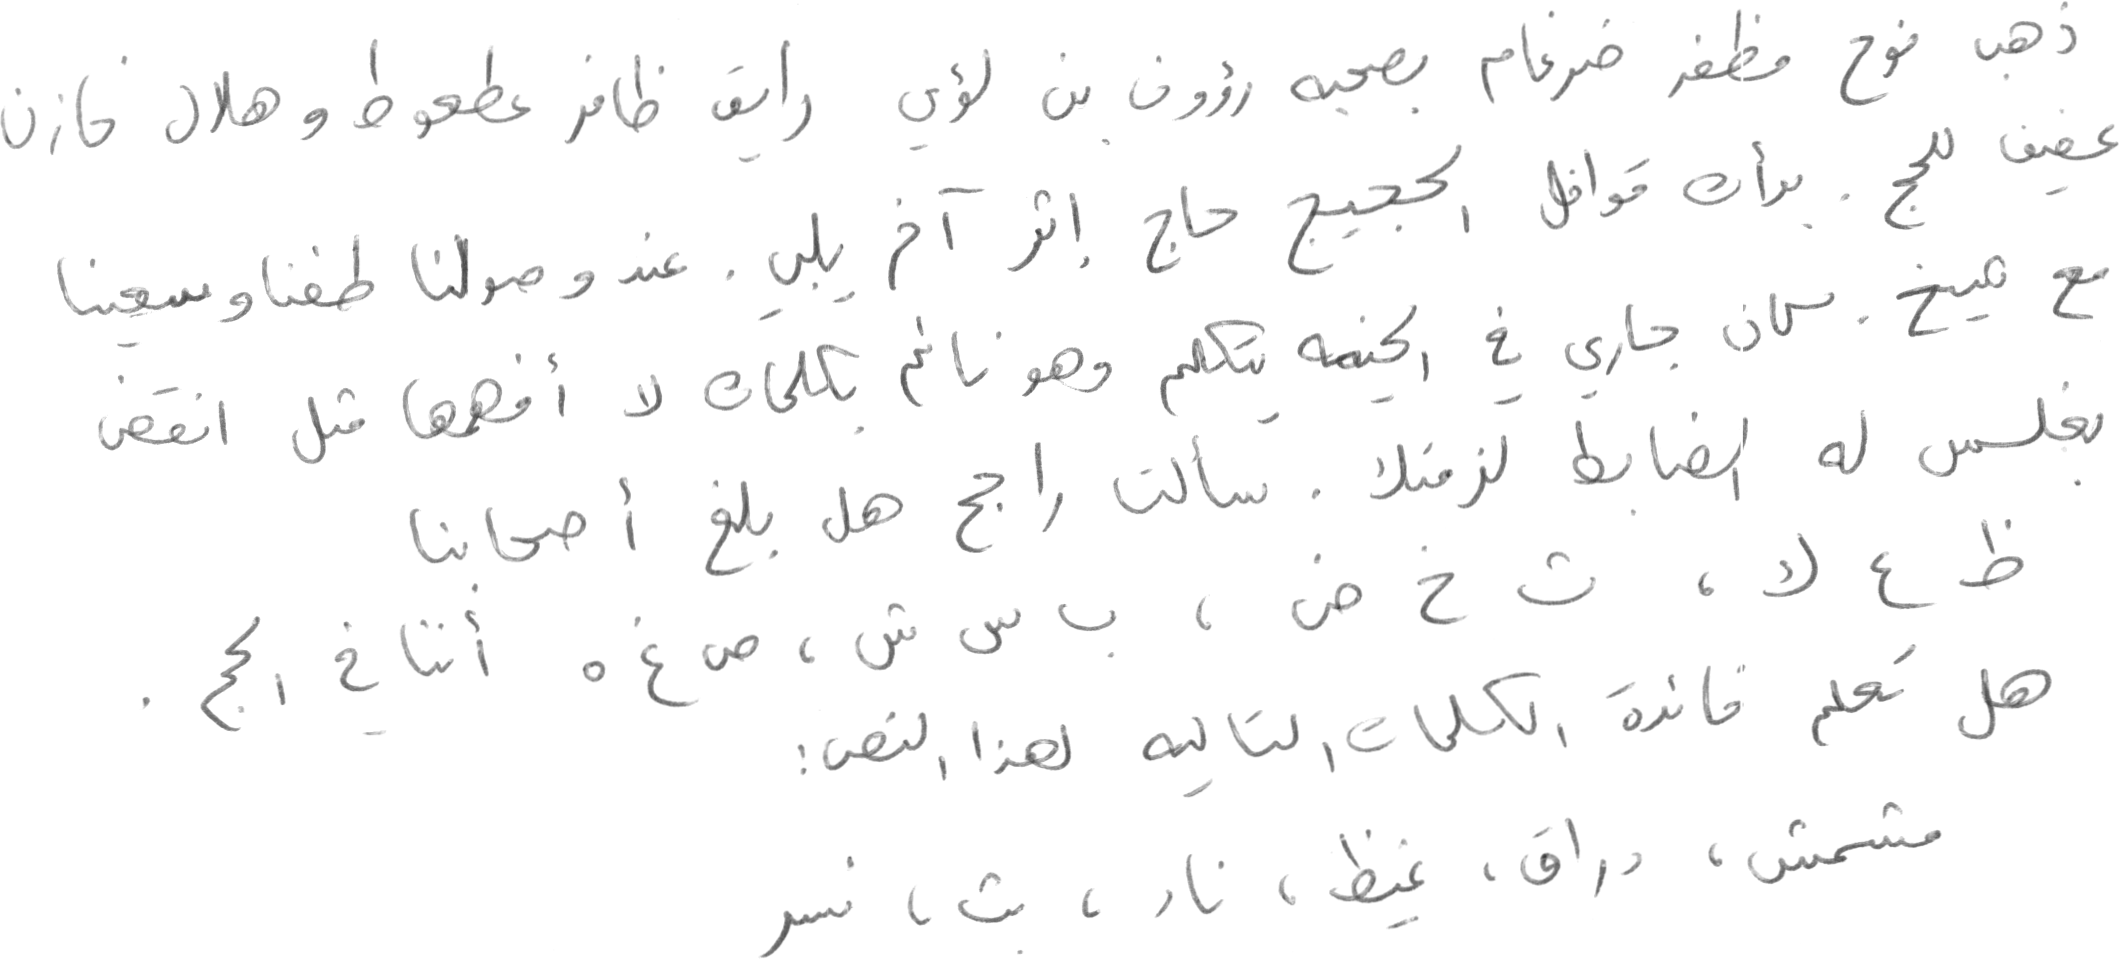 ذهب نوح مظفر ضرغام بصحبه رؤوف بن لؤي رايق ظافر عطعوط و هلال خازن
عفيف للحج . بدأت قوافل الحجيج حاج إثر آخر يلبي . عند وصولنا طفنا و سعينا
مع شيخ . كان جاري في الخيمه يتكلم وهو نائم بكلمات لا أفهمها مثل انقض
بغلس له الضابط لزمتك . سألت راجح هل بلغ أصحابنا
ظ ع ك ، ث خ ض ، ب س ش ، ص غ ه أننا في الحج .
هل تعلم فائدة الكلمات التاليه لهذا النص :
مشمش ، دراق ، غيظ ، نار ، بث ، نسر